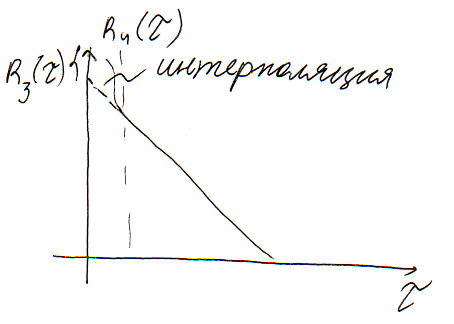 R₄(τ)
R₃(τ) интерполяция
τ